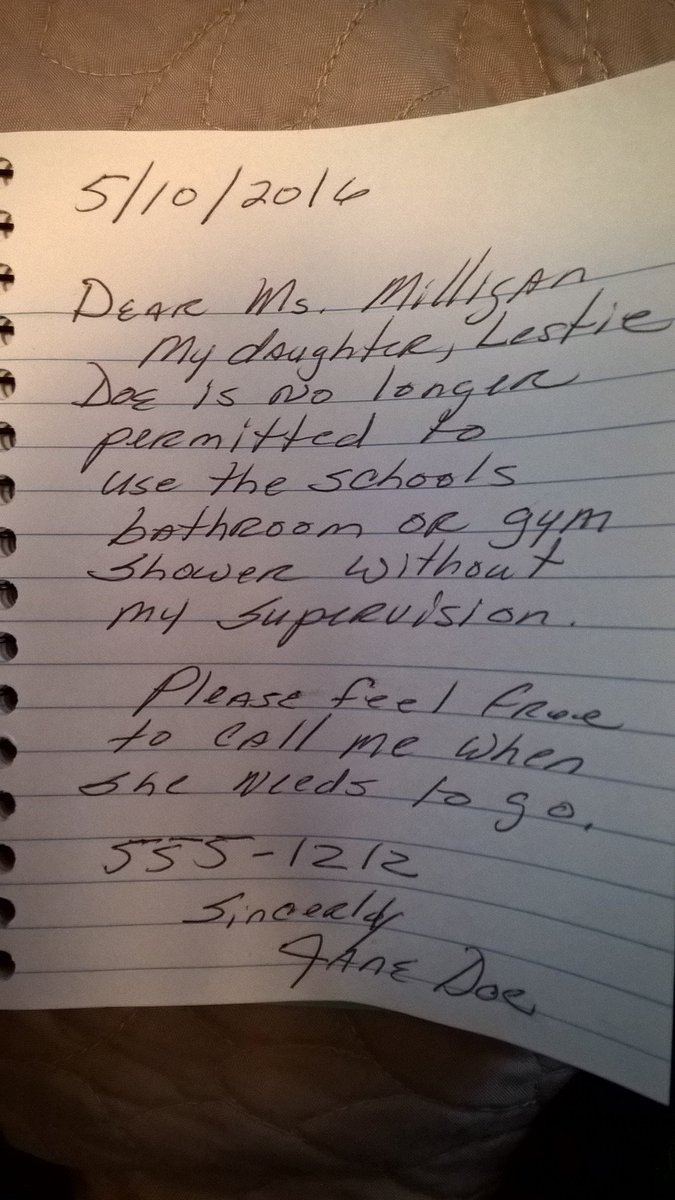 5/10/2016
Dear Ms. Milligan
My daughter, Leslie
Doe is no longer
permitted to
use the schools
bathroom or gym
shower without
my supervision.
Please feel free
to call me when
she needs to go.
555-1212
Sincerly
Jane Doe